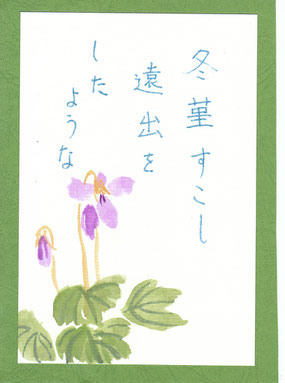 冬菫すこし
遠出を
した
ような